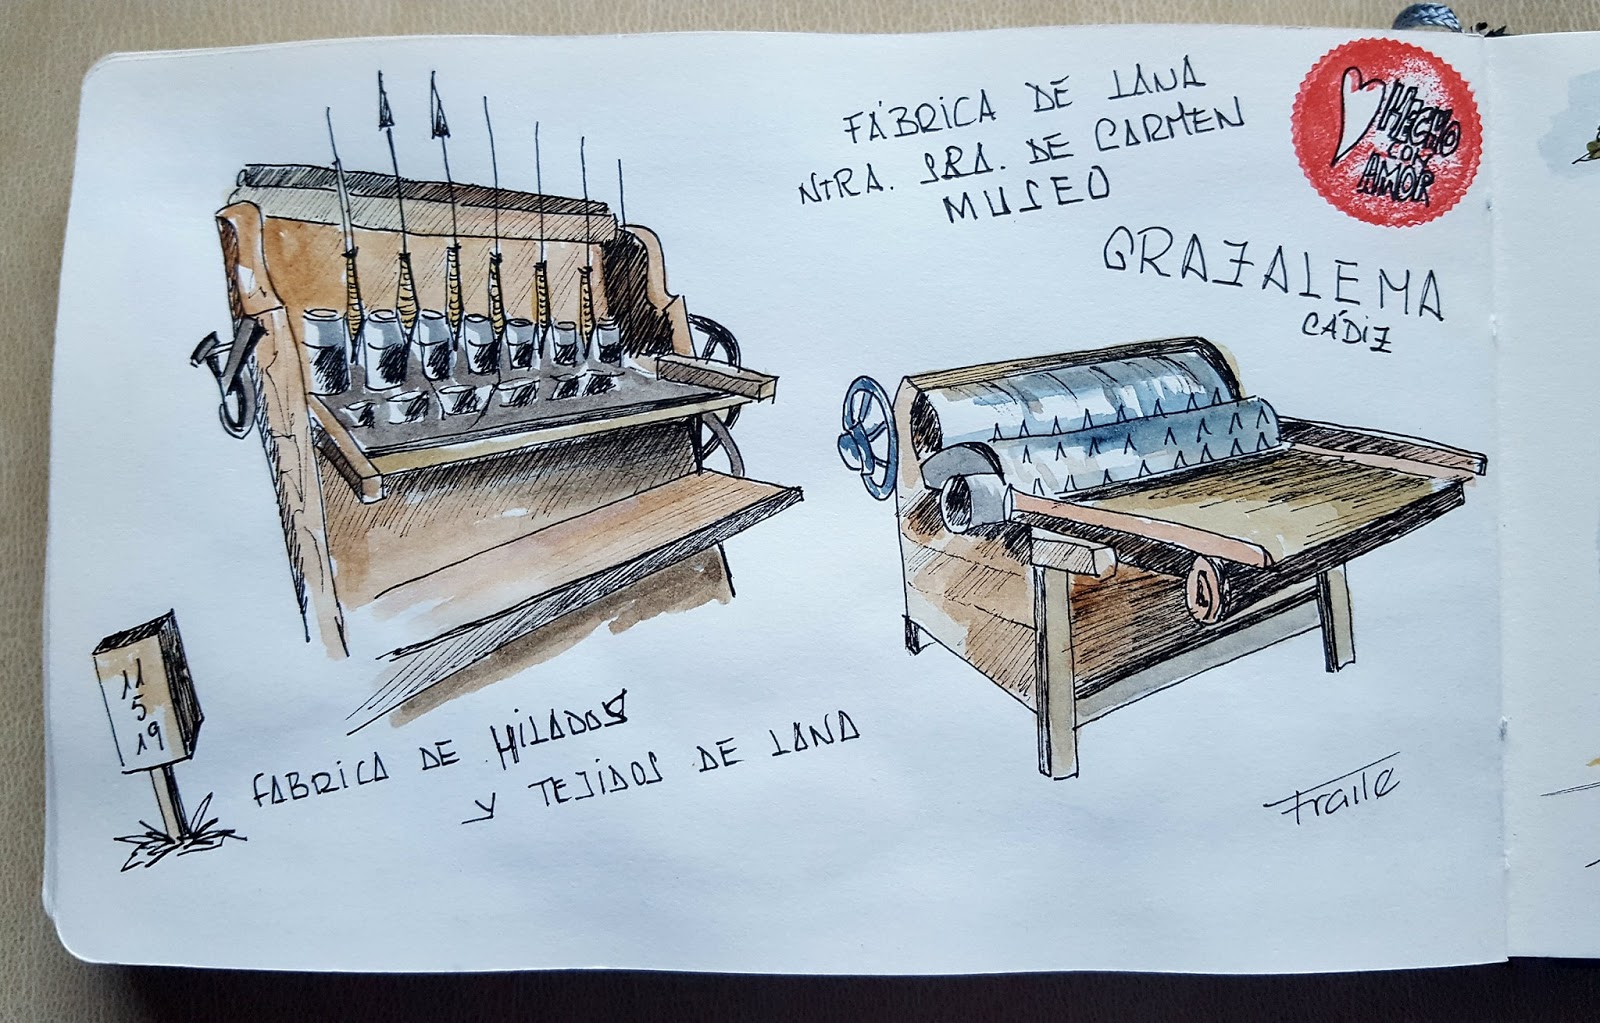 FÁBRICA DE LANA
NTRA. SRA. DE CARMEN
MUSEO
GRAZALEMA
CÁDIZ
HECHO
CON
AMOR
11
5
19
FABRICA DE HILADOS
Y TEJIDOS DE LANA
Fraile